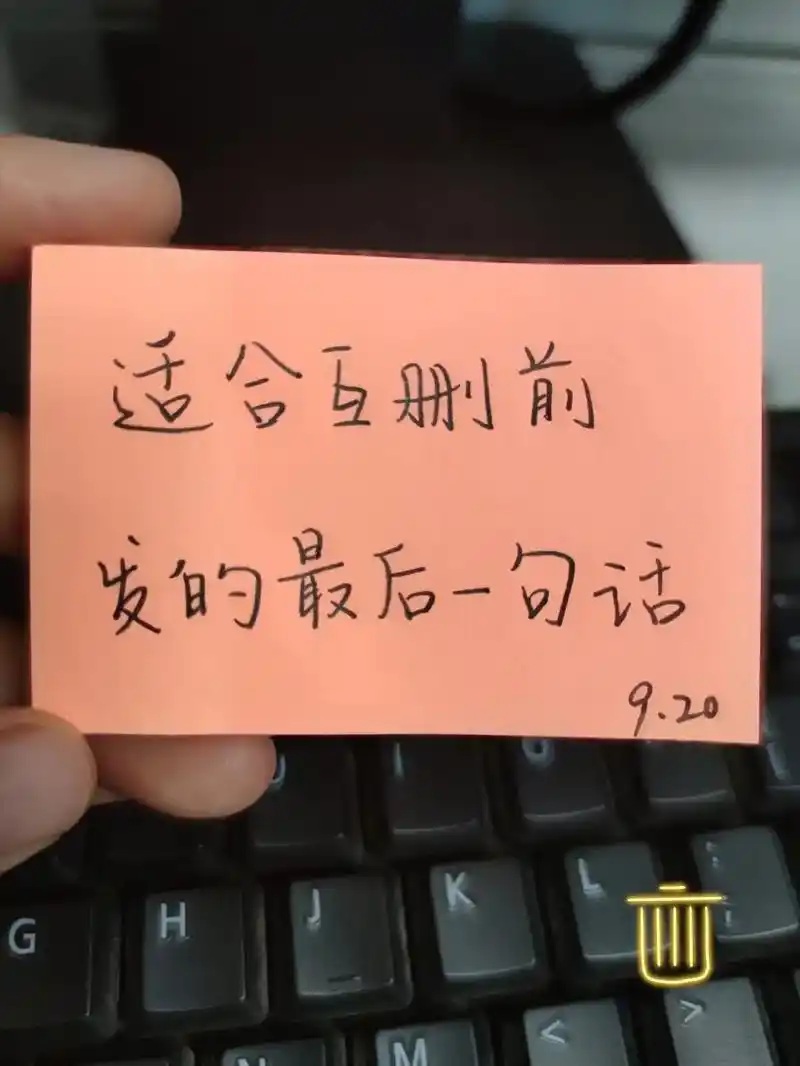 适合互删前
发的最后一句话
9.20
G H J K L
M < >